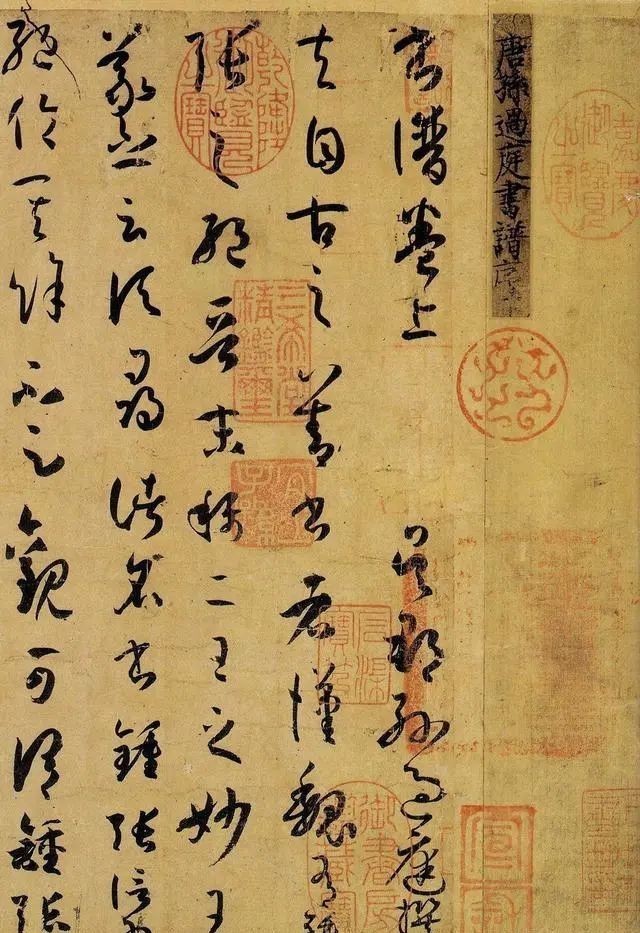 唐孫過庭書譜序
嘉慶御覽之寶
書譜卷上 吳郡孫過庭撰
夫自古之善書者漢魏有鍾
張之絕晉末稱二王之妙王
羲之云頃尋諸名書鍾張信為
絕倫其餘不足觀可謂鍾張
乾隆御覽之寶
三希堂精鑑璽
宜子孫
石渠寶笈